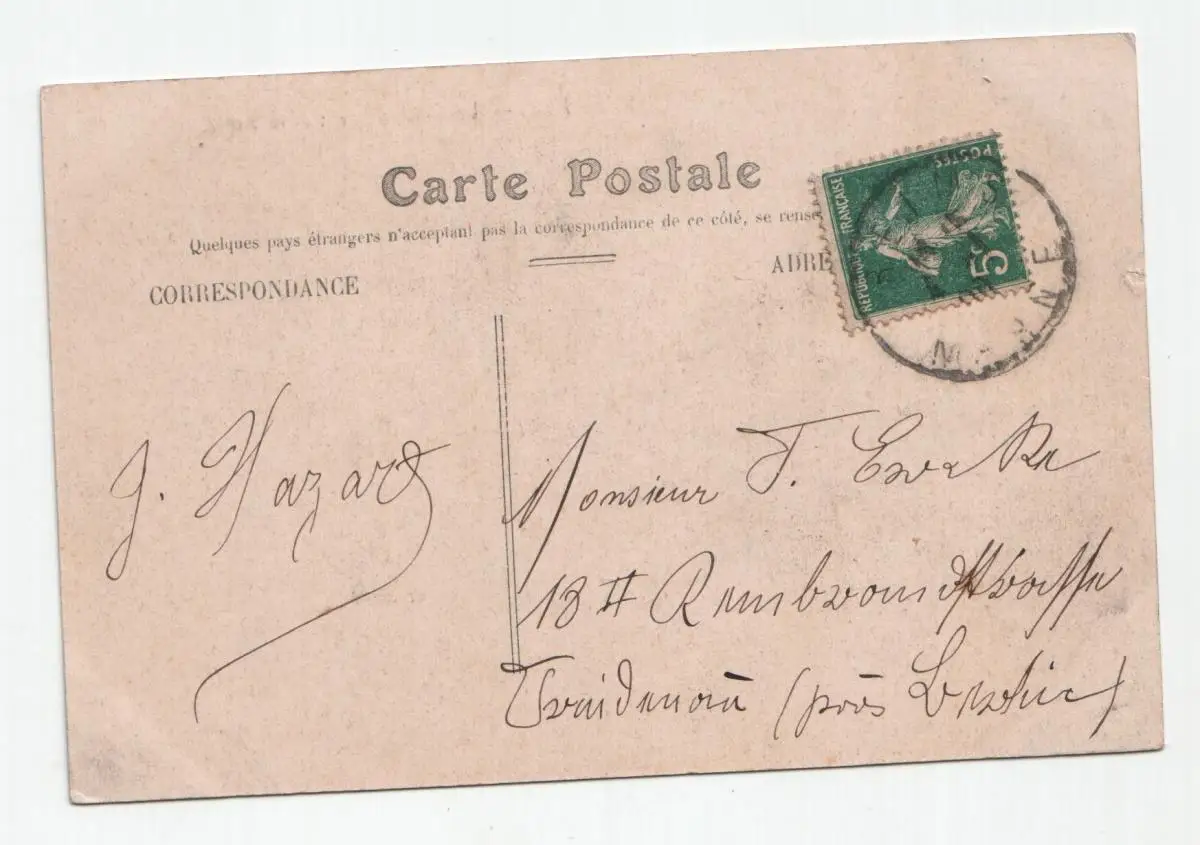 Carte Postale
Quelques pays étrangers n'acceptant pas la correspondance de ce côté, se rense
CORRESPONDANCE
ADRE
REPUBLIQUE FRANÇAISE
POSTES
5
MARNE
J. Hazard
Monsieur T.
18 II Rembrandtstrasse
(près Berlin)